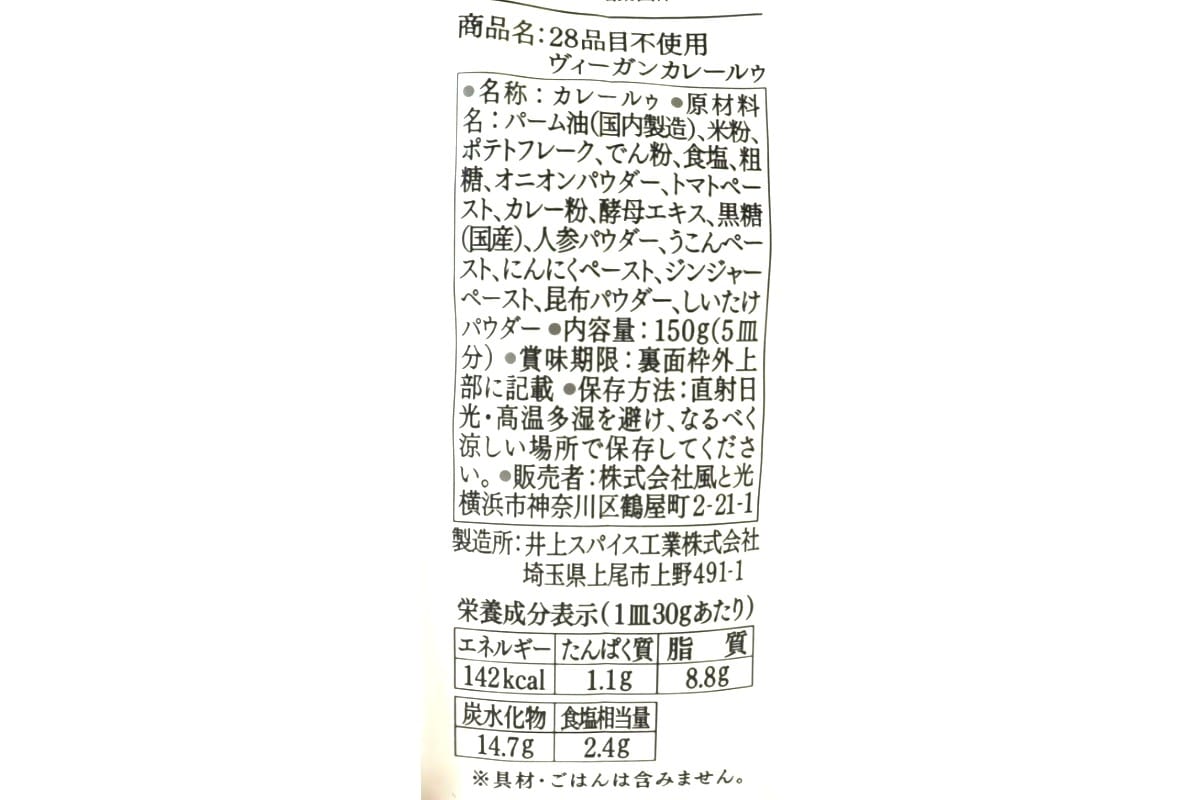 商品名:28品目不使用
ヴィーガンカレールゥ
●名称:カレールゥ ●原材料
名:パーム油(国内製造)、米粉、
ポテトフレーク、でん粉、食塩、粗
糖、オニオンパウダー、トマトペー
スト、カレー粉、酵母エキス、黒糖
(国産)、人参パウダー、うこんペー
スト、にんにくペースト、ジンジャー
ペースト、昆布パウダー、しいたけ
パウダー ●内容量:150g(5皿
分) ●賞味期限:裏面枠外上
部に記載 ●保存方法:直射日
光・高温多湿を避け、なるべく
涼しい場所で保存してくださ
い。●販売者:株式会社風と光
横浜市神奈川区鶴屋町2-21-1
製造所:井上スパイス工業株式会社
埼玉県上尾市上野491-1
栄養成分表示(1皿30gあたり)
エネルギー たんぱく質 脂 質
142kcal 1.1g 8.8g
炭水化物 食塩相当量
14.7g 2.4g
※具材・ごはんは含みません。